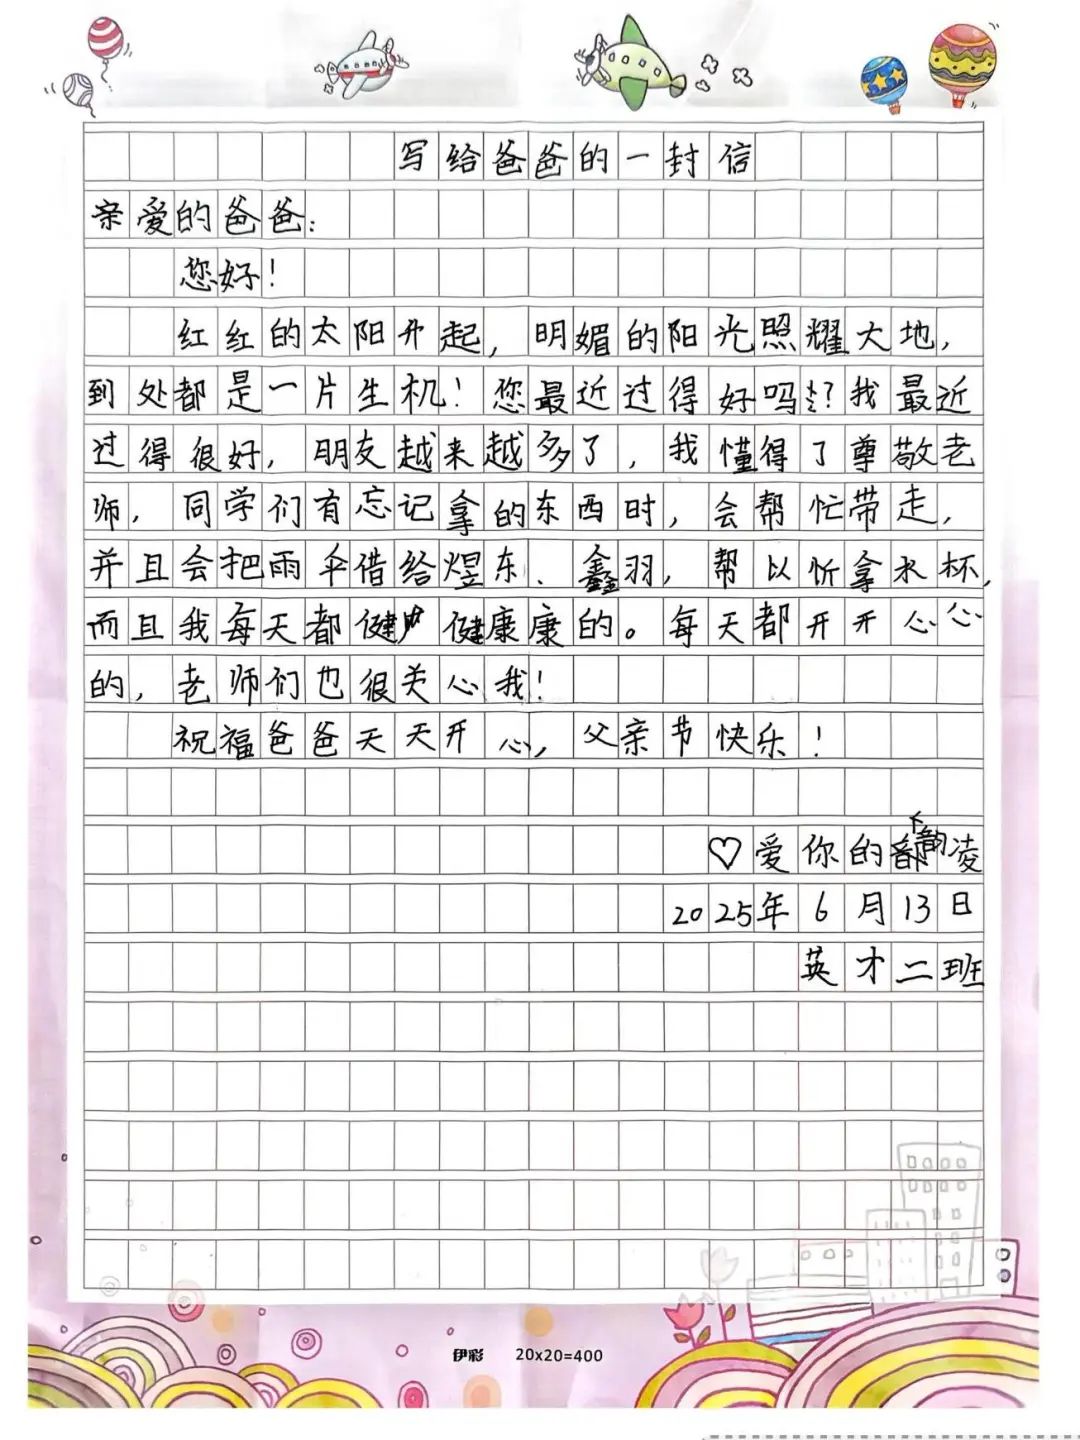 写给爸爸的一封信
亲爱的爸爸：
您好！
红红的太阳升起，明媚的阳光照耀大地，
到处都是一片生机！您最近过得好吗？我最近
过得很好，朋友越来越多了，我懂得了尊敬老
师，同学们有忘记拿的东西时，会帮忙带走，
并且会把雨伞借给煜东、鑫羽，帮以忻拿水杯，
而且我每天都健健康康的。每天都开开心心
的，老师们也很关心我！
祝福爸爸天天开心，父亲节快乐！
♡爱你的韵凌
2025年6月13日
英才二班
伊彩 20x20=400